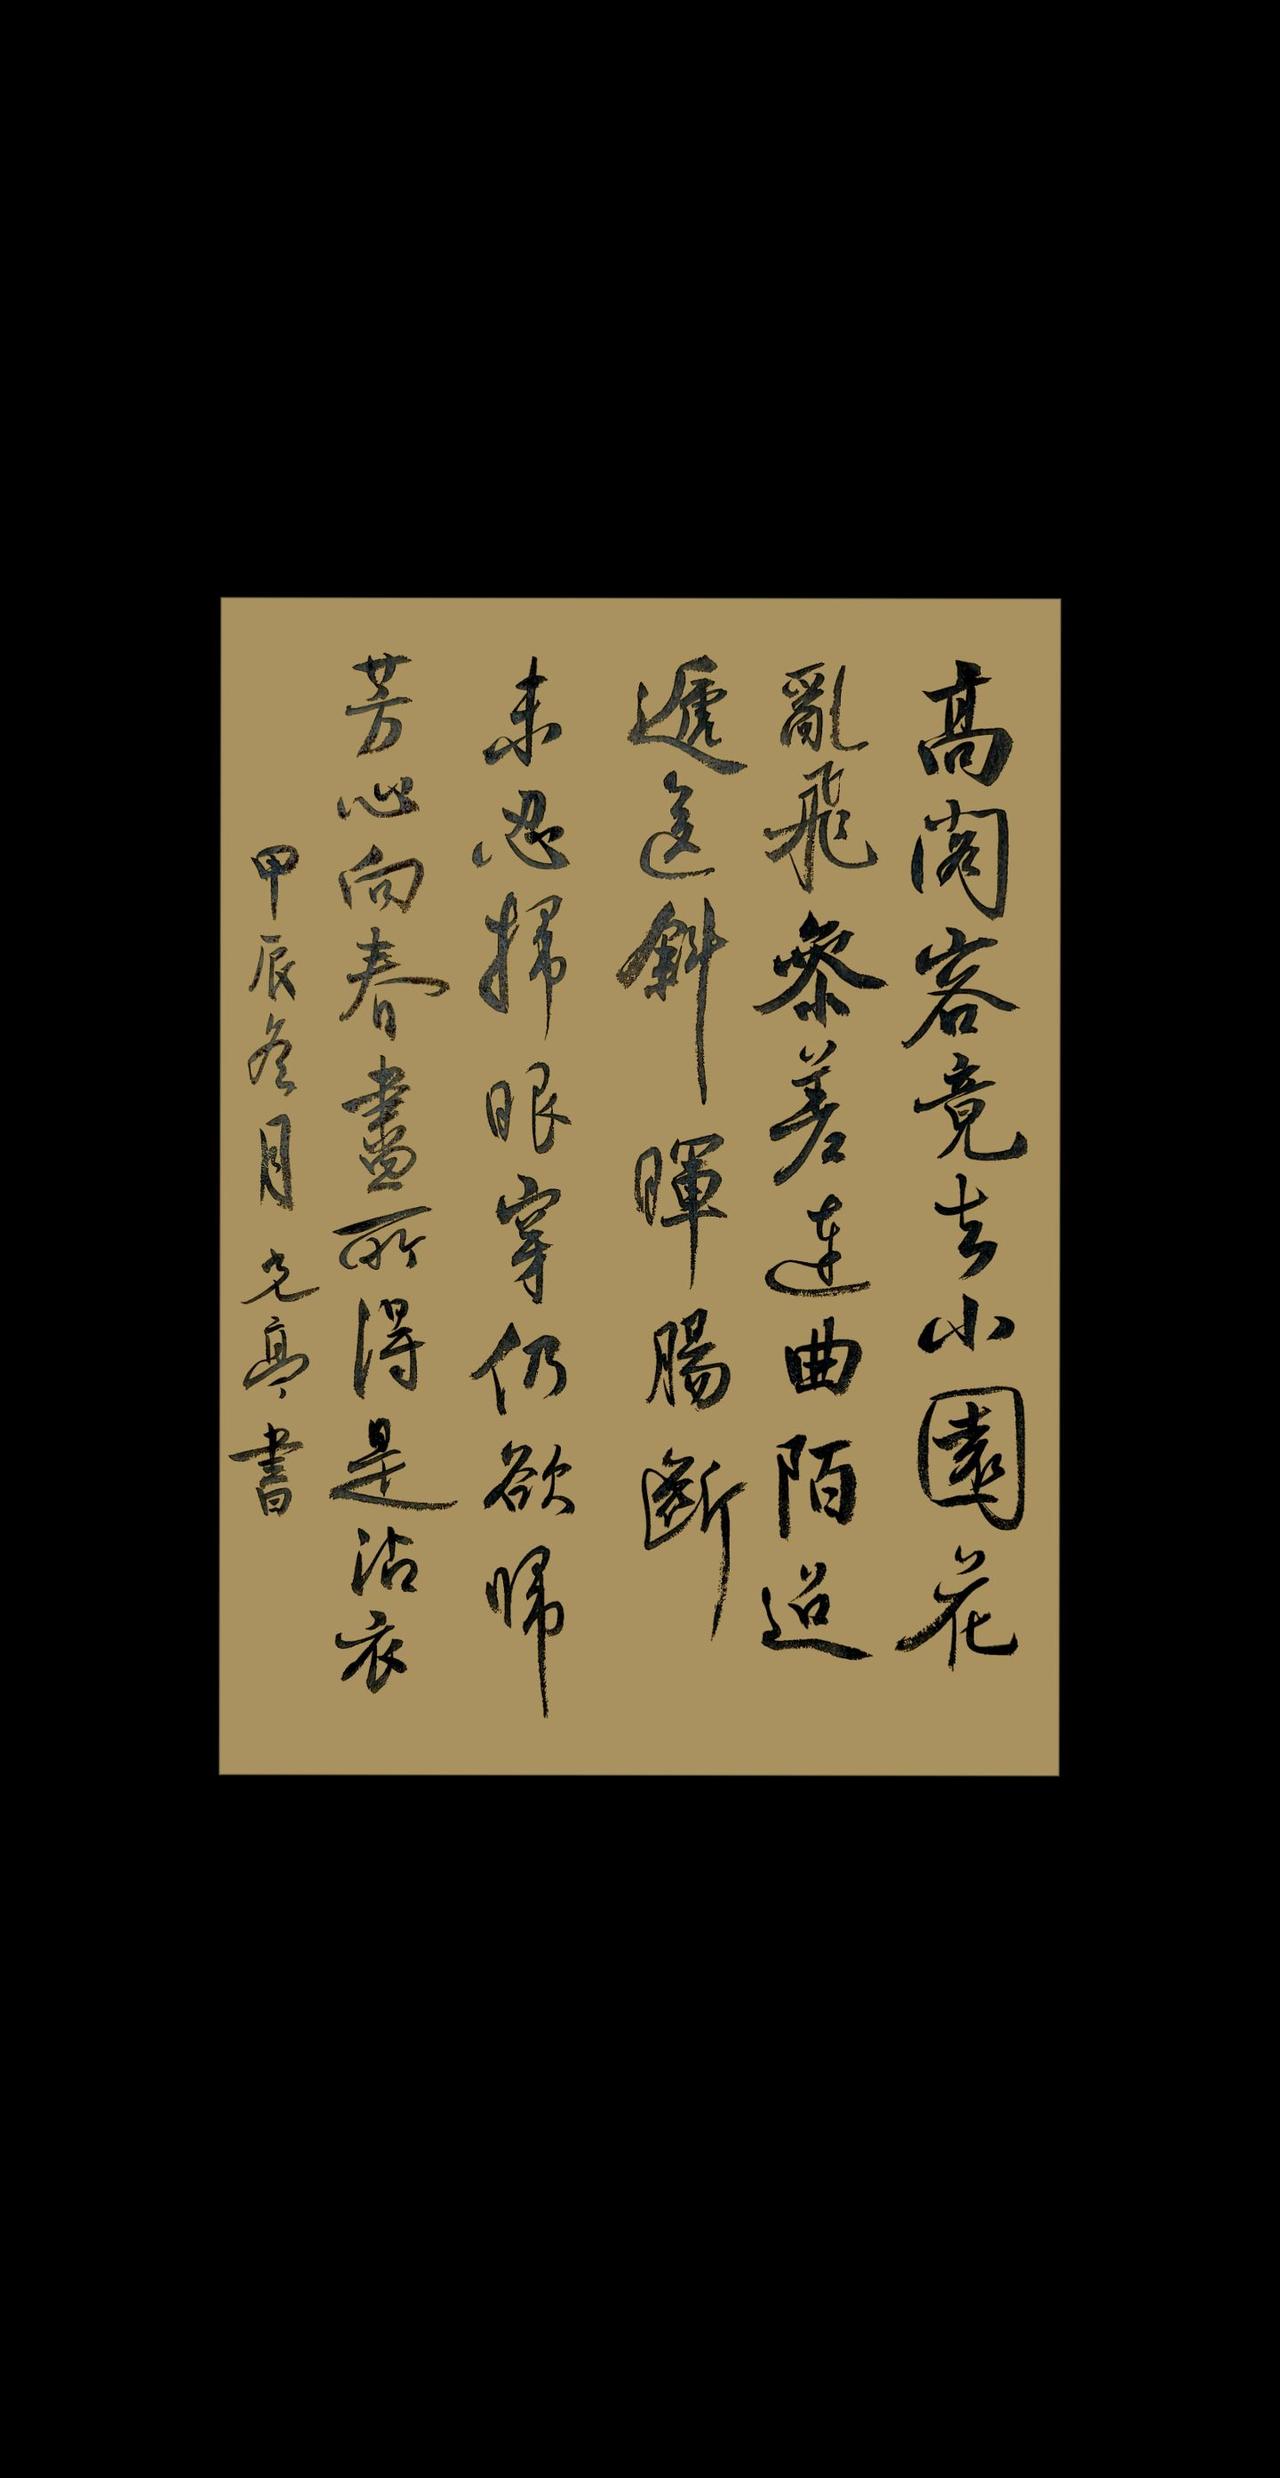 高閣客竟去小園花
亂飛參差連曲陌迢
遞送斜暉腸斷
未忍掃眼穿仍欲歸
芳心向春盡所得是沾衣
甲辰冬月 光亭書